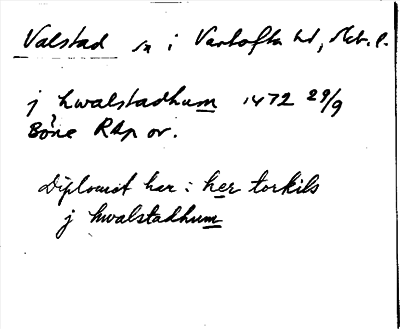 Valstad sn i Vartofta hd, Skb. l.
j hwalstadhum 1472 29/9
Båne RAp or.
Diplomet har: her torkils
j hwalstadhum